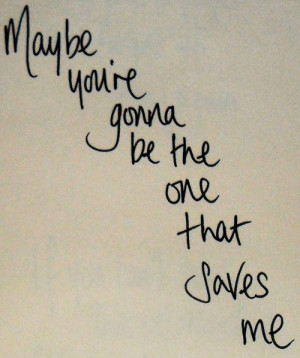 Maybe
you're
gonna
be the
one
that
saves
me